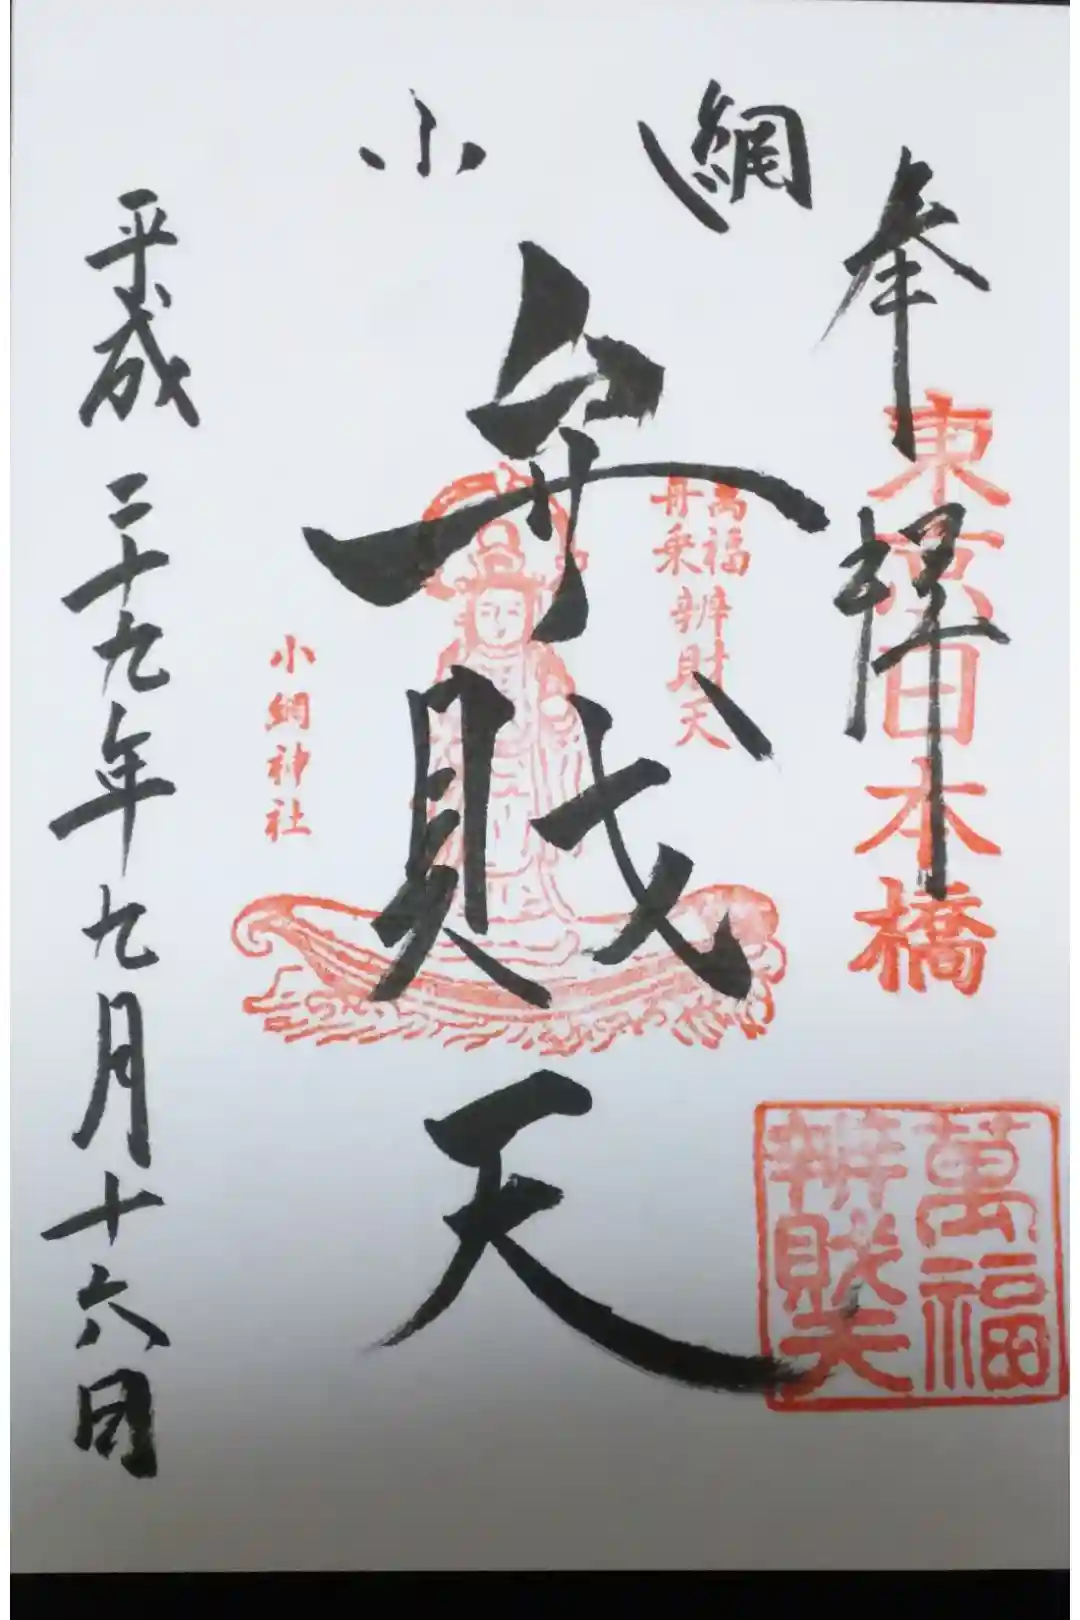 奉拝
東京日本橋
小網
弁財天
萬福
舟乗
辨財天
小網神社
平成二十九年九月十六日
萬福
辨財天